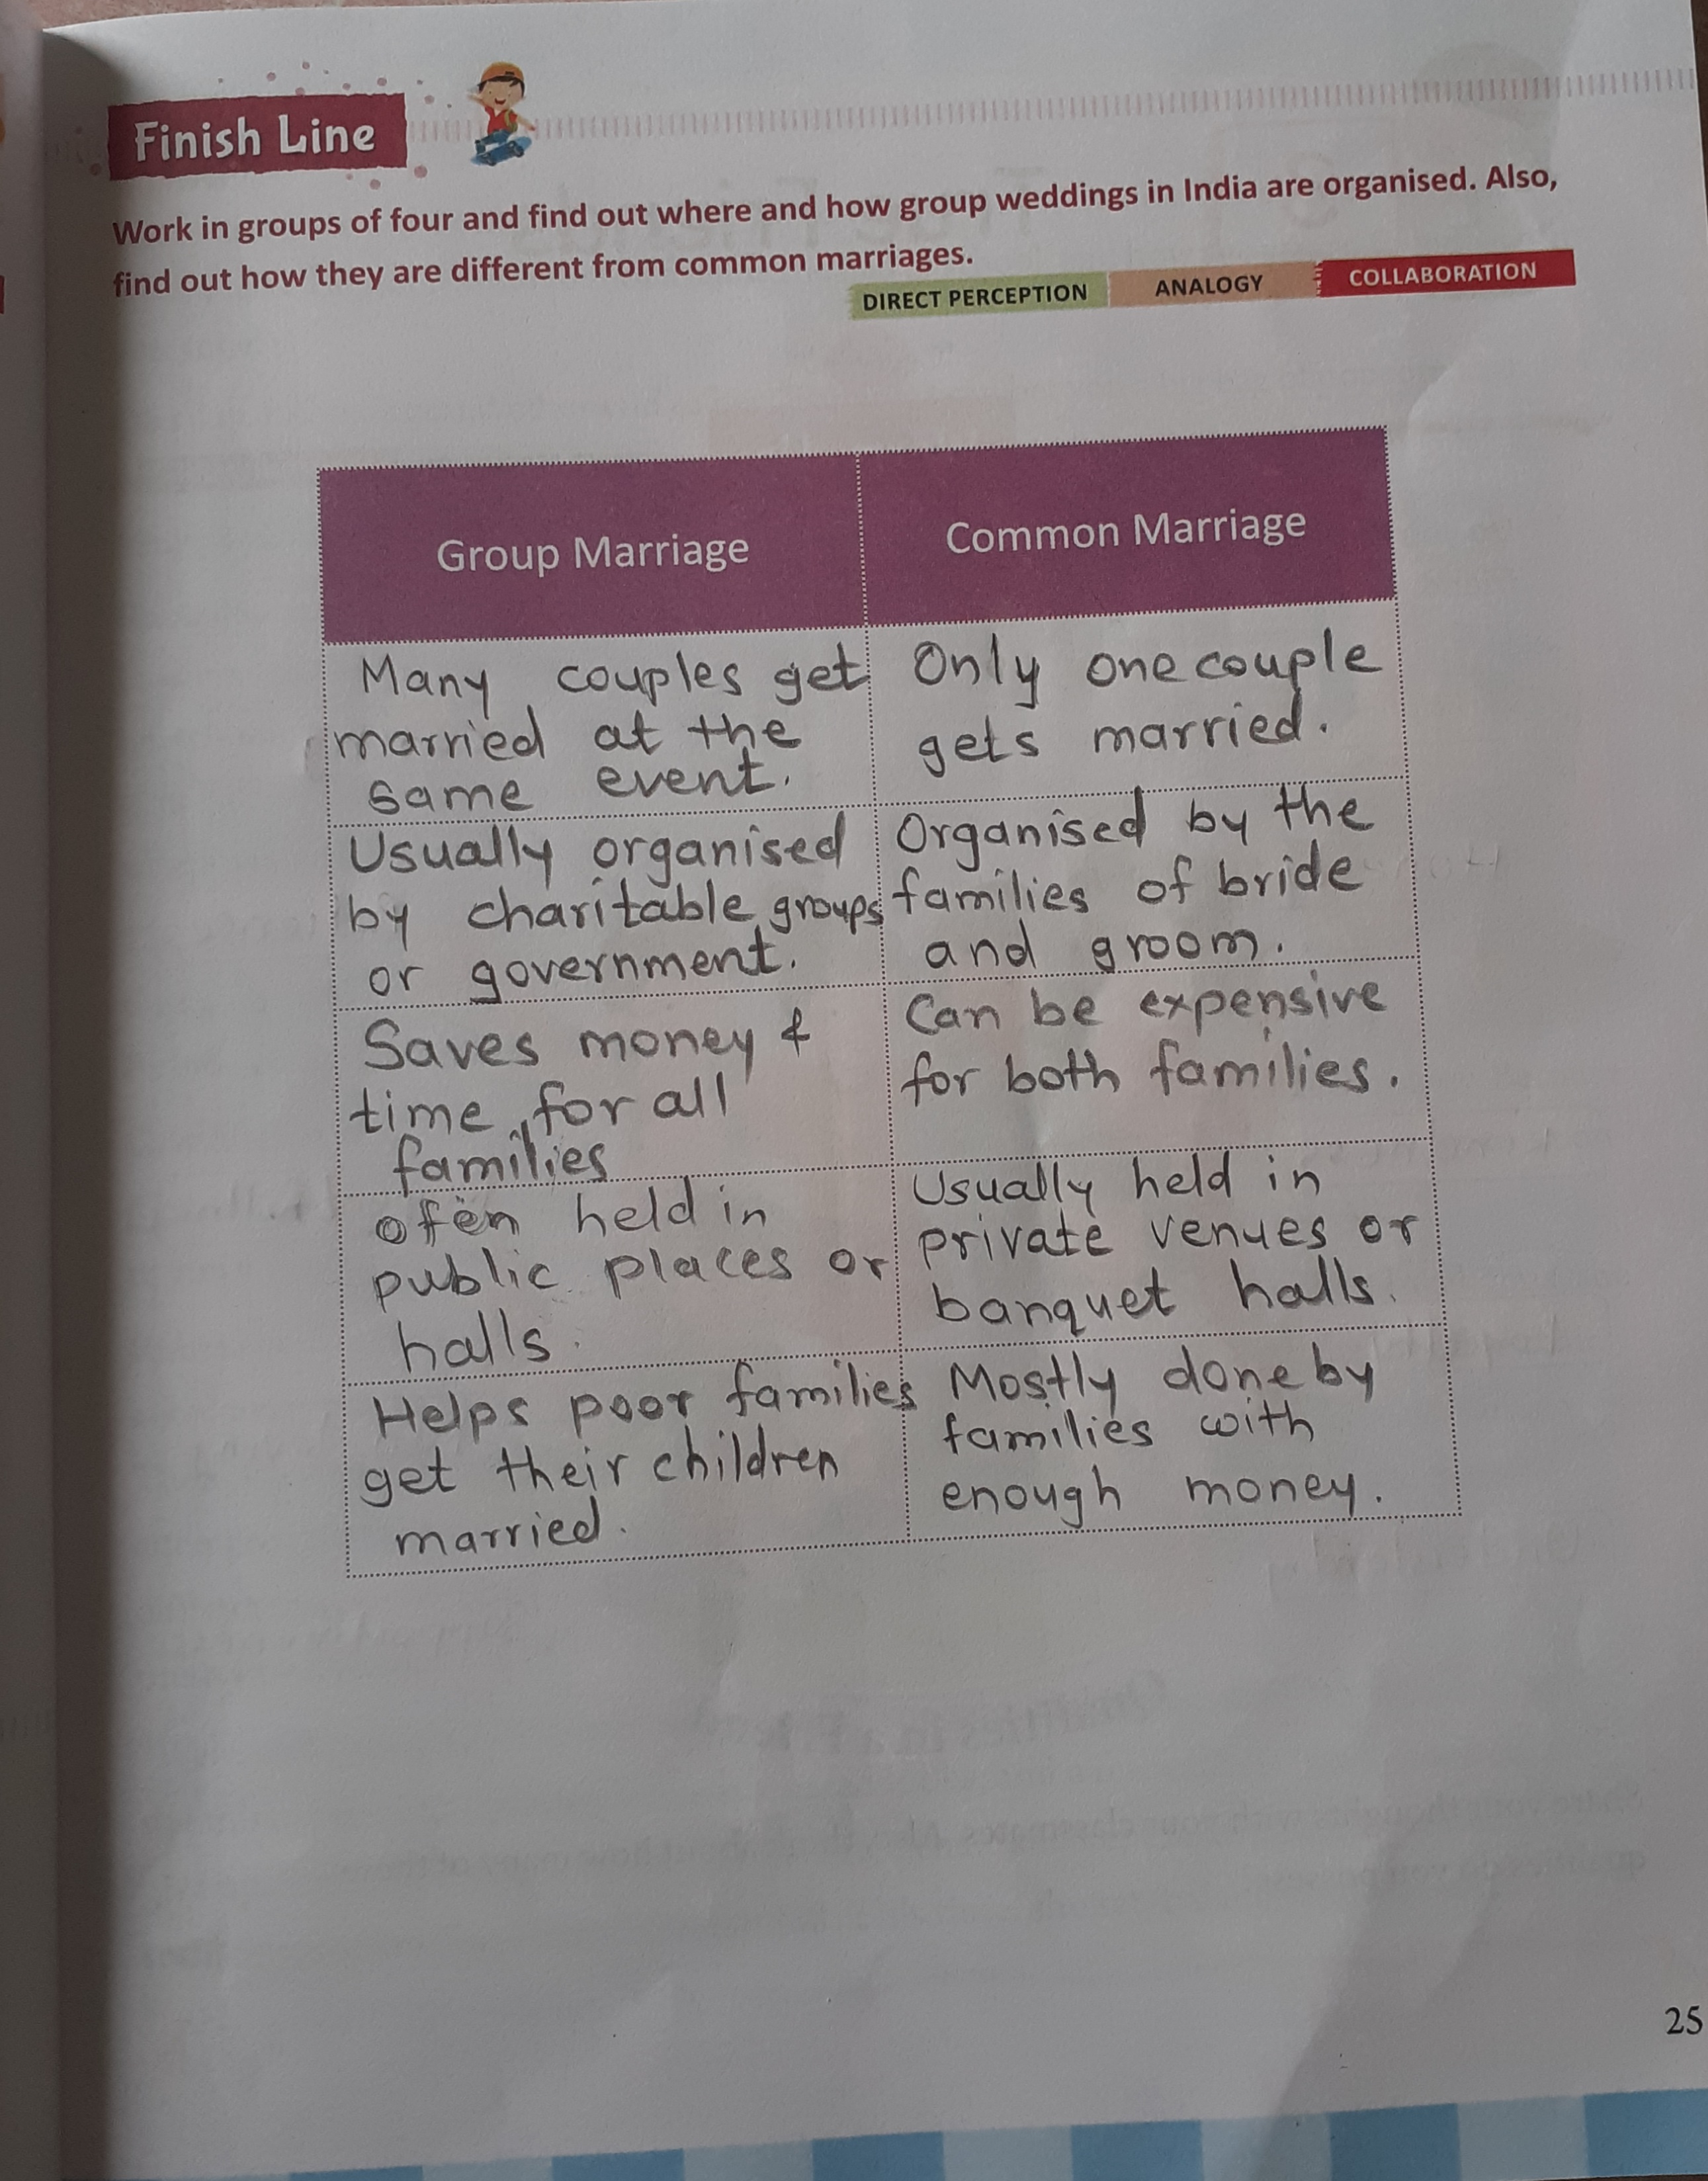 Finish Line
Work in groups of four and find out where and how group weddings in India are organised. Also,
find out how they are different from common marriages.
DIRECT PERCEPTION ANALOGY COLLABORATION
Group Marriage
Common Marriage
Many couples get
married at the
same event.
Only one couple
gets married.
Usually organised
by charitable groups
or government.
Organised by the
families of bride
and groom.
Saves money &
time, for all
families
Can be expensive
for both families.
ofen held in
public places or
halls.
Usually held in
private venues or
banquet halls.
Helps poor families
get their children
married.
Mostly done by
families with
enough money.
25